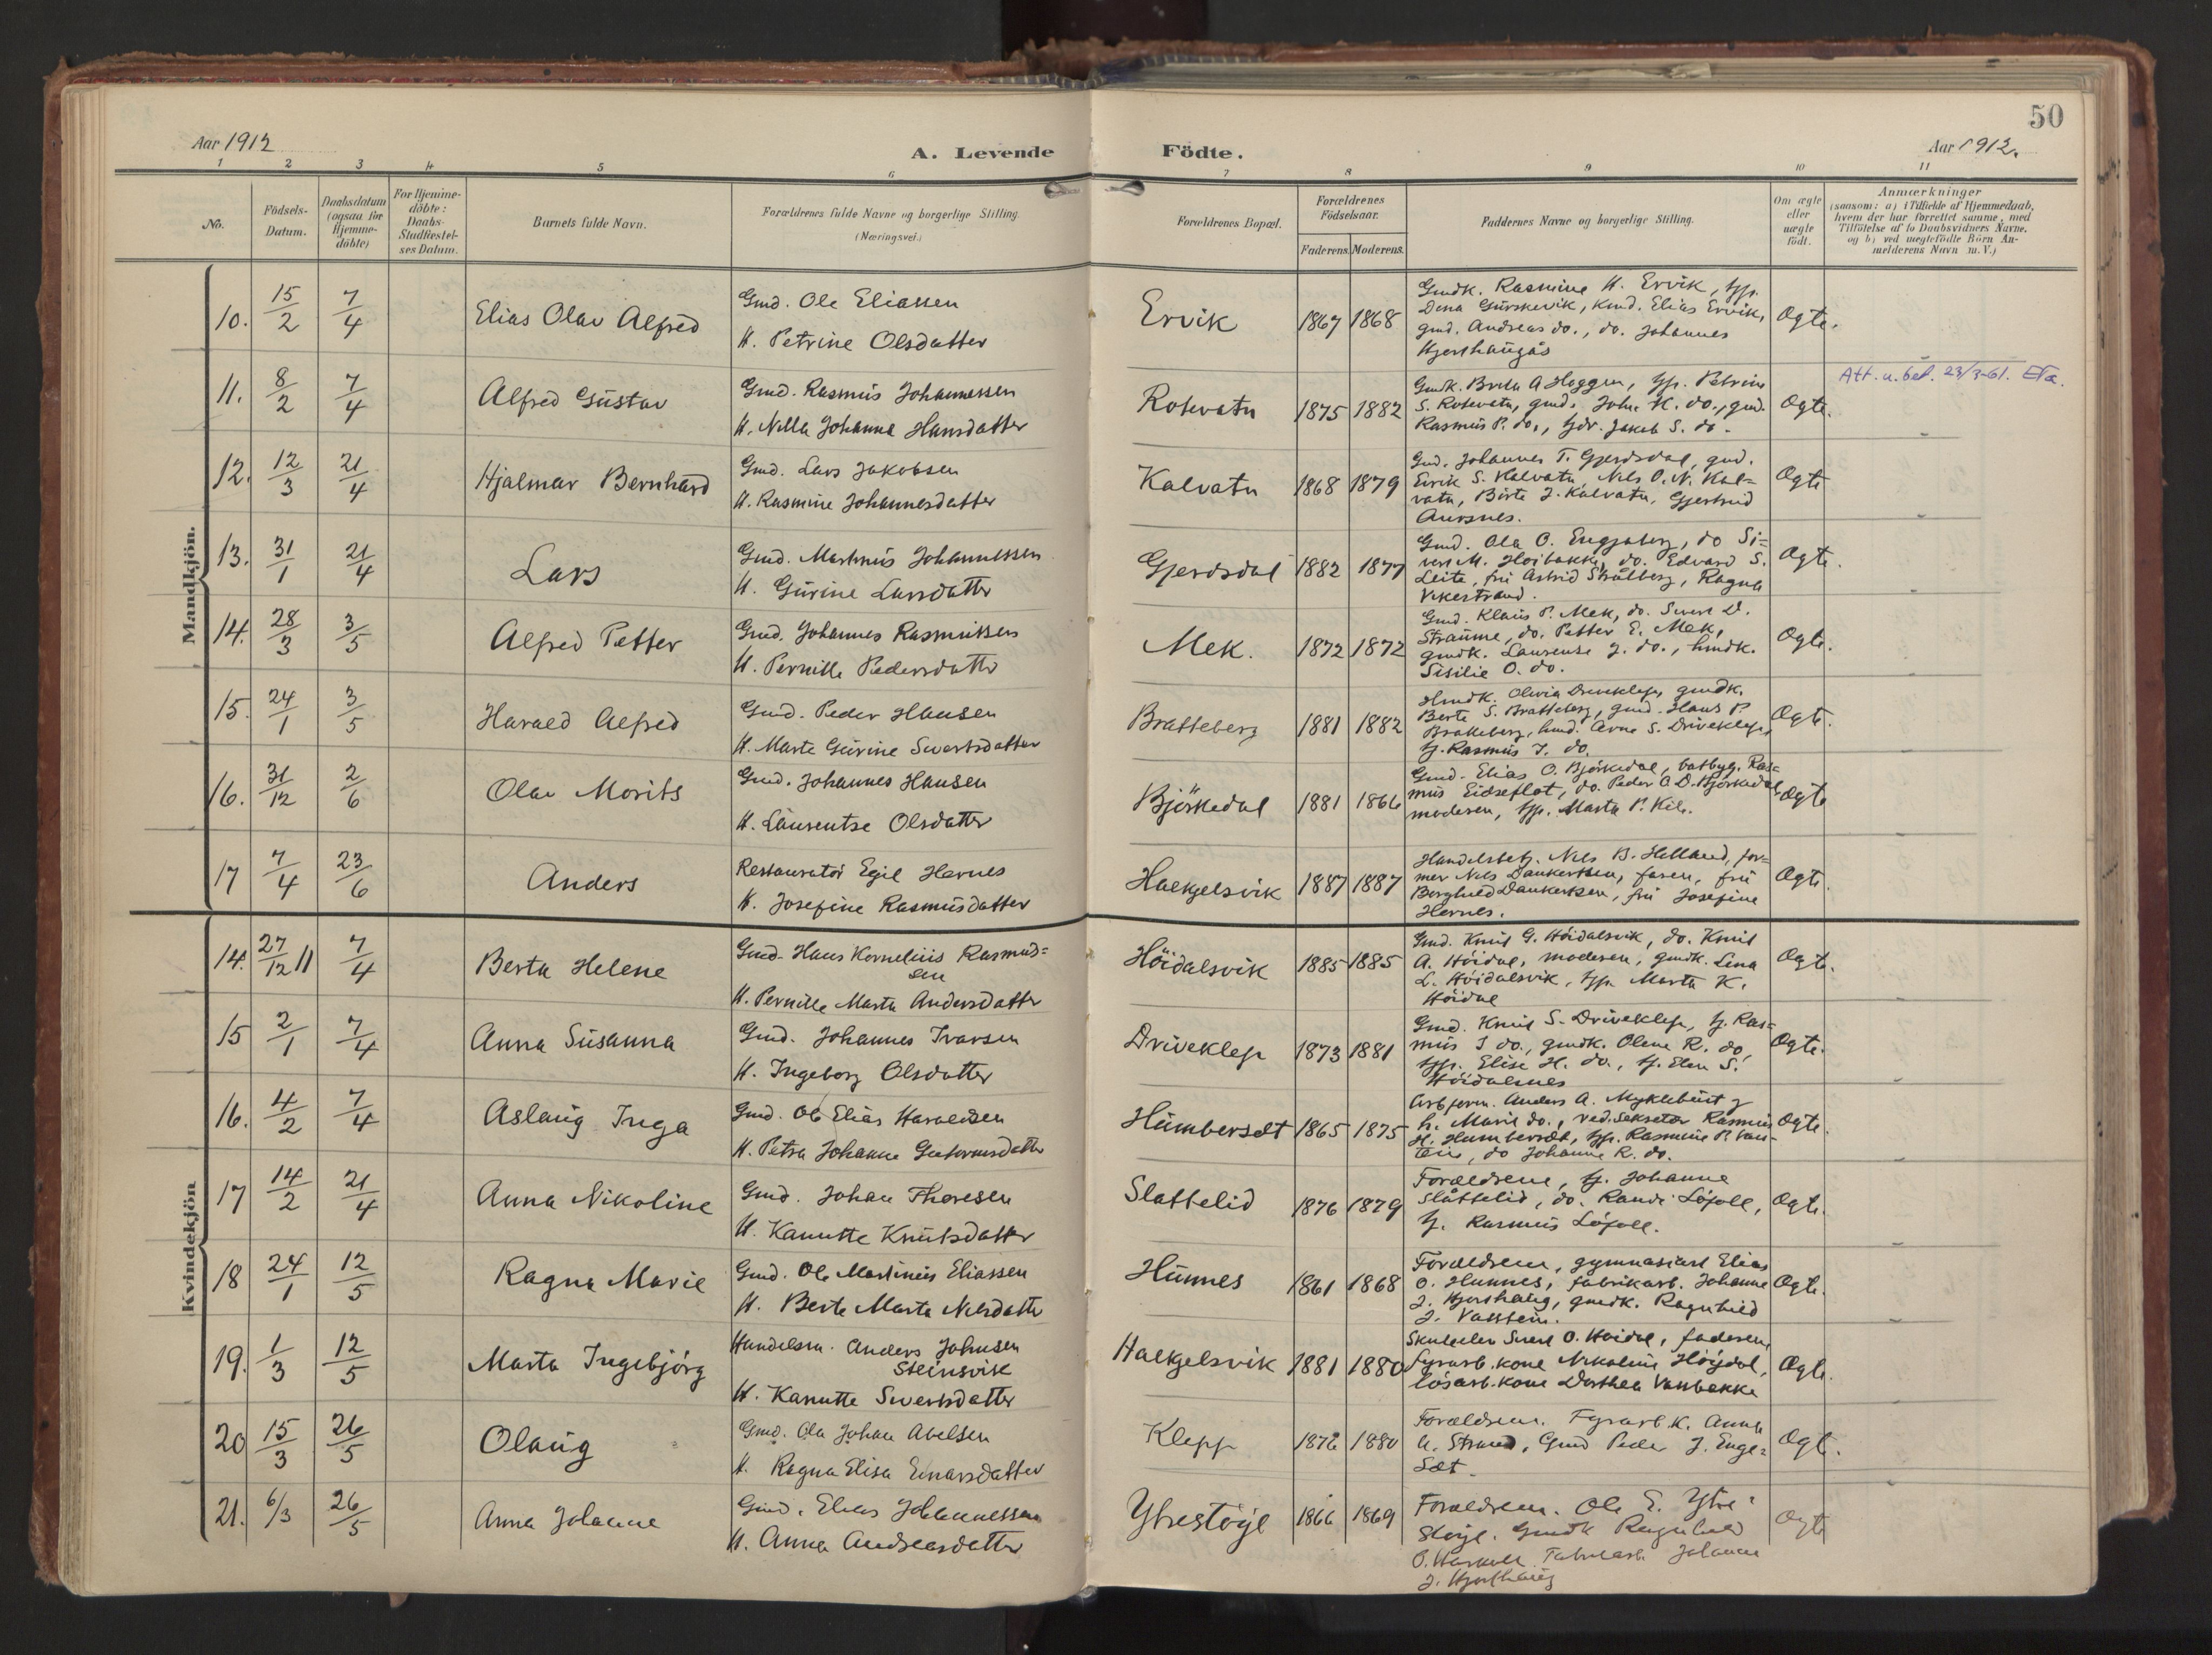 50
Aar 1912
A. Levende Födte.
Aar 1912.
1 2 3 4 5 6 7 8 9 10 11
No.
Födsels-Datum.
Daabsdatum (ogsaa for Hjemme-döbte)
For Hjemme-döbte: Daabs-Stadfæstel-ses Datum.
Barnets fulde Navn.
Forældrenes fulde Navne og borgerlige Stilling. (Næringsvei.)
Forældrenes Bopæl.
Forældrenes Födselsaar.
Faderens. Moderens.
Faddernes Navne og borgerlige Stilling.
Om ægte eller uægte födt.
Anmærkninger
(saasom: a) i Tilfælde af Hjemmedaab, hvem der har forrettet samme, med Tilföielse af to Daabsvidners Navne, og b) ved uegtefödte Börn Anmelderens Navn m. V.)
Mandkjön.
10. 15/2 7/4 Elias Olav Alfred
Gmd. Ole Eliassen
H. Petrine Olsdatter
Ervik 1867 1868
Gmdk. Rasmine H. Ervik, Dina Gurskevik, Kmd. Elias Ervik, gmd. Andreas do., do. Johannes Hjorthaugås
Ogte.
11. 8/2 7/4 Alfred Gustav
Gmd. Rasmus Johannessen
H. Nilla Johanna Hansdatter
Rotevatn 1875 1882
S. Rotevatn, gmd. John K. do., gmd. Rasmus P. do., Jakob S. do.
Ogte.
Att. u. bet. 23/3-61.
12. 12/3 21/4 Hjalmar Bernhard
Gmd. Lars Jakobsen
H. Rasmine Johannesdatter
Kalvatn 1868 1879
Gmd. Johannes T. Gjerdsdal, gmd. Eirik S. Kalvatn, Nils O. N. Kal=
vatn, Birte J. Kalvatn, Gjertrud
Aursnes.
Ogte
13. 31/1 21/4 Lars
Gmd. Martinus Johannessen
H. Gurine Larsdatter
Gjerdsdal 1882 1877
Gmd. Ola O. Engjaberg, do Si=
vert M. Hoibakk, do. Edvard S.
Leite, fru Astrid Strålberg, Ragna
Vikestrand.
Ogte.
14. 28/3 3/5 Alfred Petter
Gmd. Johannes Rasmussen
H. Pernille Pedersdatter
Mek. 1872 1872
Gmd. Klaus P. Mek, do. Sivert D.
Straume, do. Petter E. Mek,
gmdk. Laurense J. do., hmdk.
Sisilie O. do.
Ogte.
15. 24/1 3/5 Harald Alfred
Gmd. Peder Hansen
H. Marte Gurine Sivertsdatter
Bratteberg 1881 1882
Hmdk. Olivia Driveklep, gmdk.
Berte S. Bratteberg, gmd. Hans P.
Bratteberg, hmd. Arne S. Driveklep,
Rasmus I. do.
Ogte.
16. 31/12 2/6 Olav Morits
Gmd. Johannes Hansen
H. Laurentse Olsdatter
Björkedal 1881 1866
Gmd. Elias O. Björkedal, batbyg. Ras=
mus Eidseflot, do. Peder A. D. Björkedal,
moderen, Marta P. Kil.
Ogte
17 7/4 23/6 Anders
Restauratör Egil Hernes
H. Josefine Rasmusdatter
Haekgelsvik 1887 1887
Handelsbetj. Nils B. Helland, for=
mer Nils Dankertsen, faren, fru
Borghild Dankertsen, fru Josefine
Hernes.
Ogte.
Kvindekjön
14. 27/12 11 7/4 Berta Helene
Gmd. Hans Kornelius Rasmus=
sen
H. Pernille Marta Andersdatter
Höidalsvik 1885 1885
Gmd. Knut G. Höidalsvik, do. Knut
A. Höidal, moderen, gmdk. Lina
L. Höidalsvik, Marta K.
Höidal
Ogte.
15 2/1 7/4 Anna Susanna
Gmd. Johannes Ivarsen
H. Ingeborg Olsdatter
Driveklep 1873 1881
Gmd. Knut S. Driveklep, Ras=
mus I do., gmdk. Olene R. do,
Elise H. do., Elen S.
Höidalsnes
Ogte.
16. 4/2 7/4 Aslaug Inga
Gmd. Ole Elias Haraldsen
H. Petra Johanne Guttormsdatter
Humberset 1865 1875
Arbform. Anders A. Myklebust
h. Marie do., ved. Sekretær Rasmus
H. Humberset, Rasmine P.
do Johanne R. do.
Ogte.
17 14/2 21/4 Anna Nikoline
Gmd. Johan Thoresen
H. Kanutte Knutsdatter
Slattelid 1876 1879
Forældrene, Johanne
Slåttelid, do. Randi Löfoll,
Rasmus Löfoll.
Ogte.
18 24/1 12/5 Ragna Marie
Gmd. Ole Martinus Eliassen
H. Berte Marta Nilsdatter
Hunnes 1861 1868
Forældrene, gymnasiast Elias
O. Hunnes, fabrikarb. Johanne
J. Hjorthaug, gmdk. Ragnhild
J. Vasstein.
Ogte.
19. 1/3 12/5 Marta Ingebjörg
Handelsm. Anders Johnsen
Steinsvik
H. Kanutte Sivertsdatter
Haekgelsvik 1881 1880
Sivert O. Höidal, faderen,
Fyrarb. kone Nikoline Höydal,
lösarb. kone Dorthea Vanbakke
Ogte.
20 15/3 26/5 Olaug
Gmd. Ola Johan Abelsen
H. Ragna Elisa Einarsdatter
Klepp 1876 1880
Forældrene. Fyrarb. k. Anna
A. Strand, Gmd Peder J. Enge=
Sæt.
Ogte.
21. 6/3 26/5 Anna Johanne
Gmd. Elias Johannessen
H. Anna Andreasdatter
Ytrestöyl 1866 1869
Forældrene. Ole E. Ytre=
Stöyl. Gmdk Ragnhild
Fabrikarb. Johanne
J. Hjorthaug
Ogte